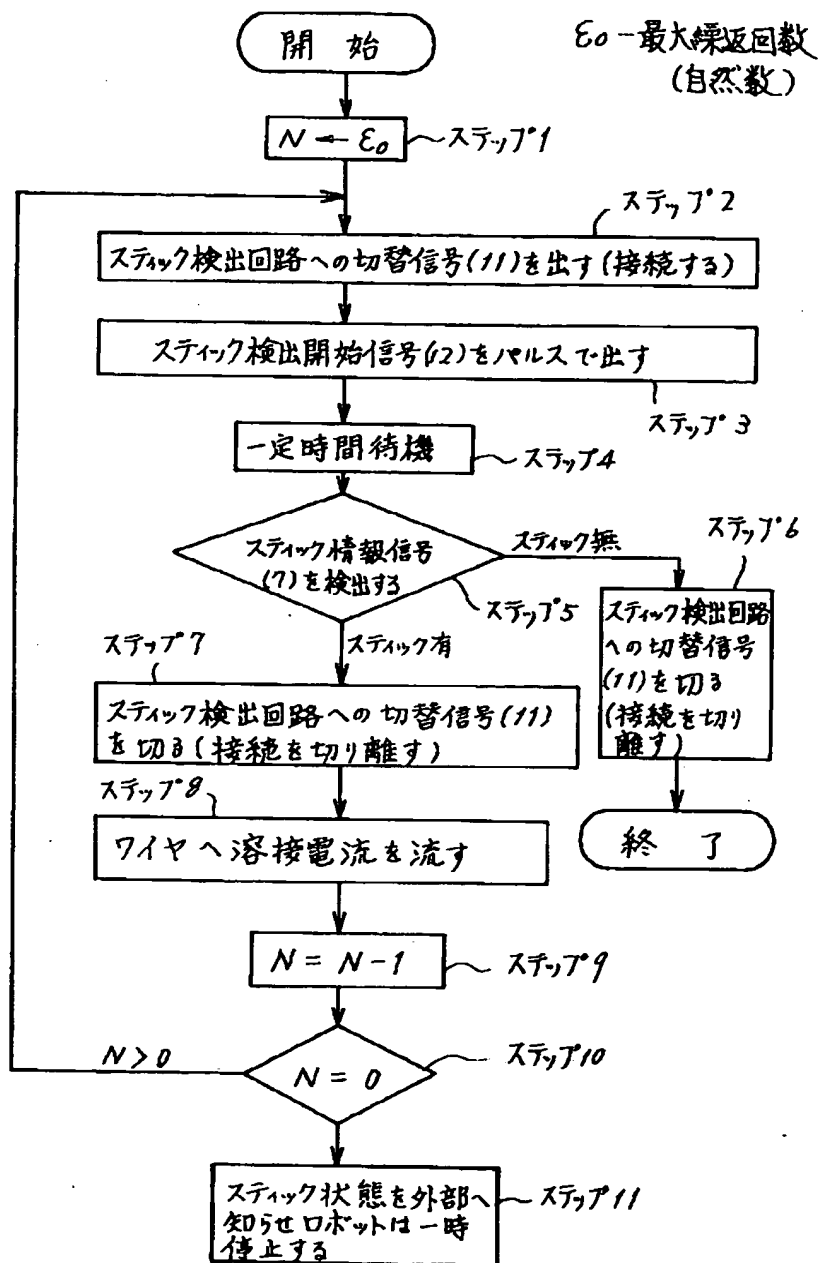 開 始
ε0 - 最大繰返回数
(自然数)
N ← ε0
ステップ1
ステップ2
スティック検出回路への切替信号(11)を出す(接続する)
スティック検出開始信号(12)をパルスで出す
ステップ3
一定時間待機
ステップ4
スティック情報信号
(7)を検出する
スティック無
ステップ5
ステップ6
スティック検出回路
への切替信号
(11)を切る
(接続を切り
離す)
終 了
スティック有
ステップ7
スティック検出回路への切替信号(11)
を切る(接続を切り離す)
ステップ8
ワイヤへ溶接電流を流す
N = N-1
ステップ9
N > 0
N = 0
ステップ10
スティック状態を外部へ
知らせロボットは一時
停止する
ステップ11